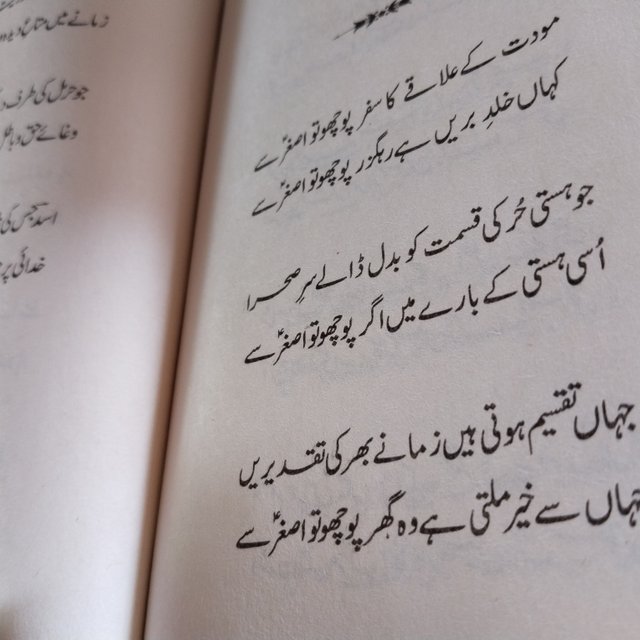 مودت کے علاقے کا سفر پوچھو تو اصغرؑ سے
کہاں خلدِ بریں ہے رہگزر پوچھو تو اصغرؑ سے
جو ہستی حُر کی قسمت کو بدل ڈالے سرِ صحرا
اُسی ہستی کے بارے میں اگر پوچھو تو اصغرؑ سے
جہاں تقسیم ہوتی ہیں زمانے بھر کی تقدیریں
جہاں سے خیر ملتی ہے وہ گھر پوچھو تو اصغرؑ سے
زمانے میں
جو حزل کی طرف
خدائی پر